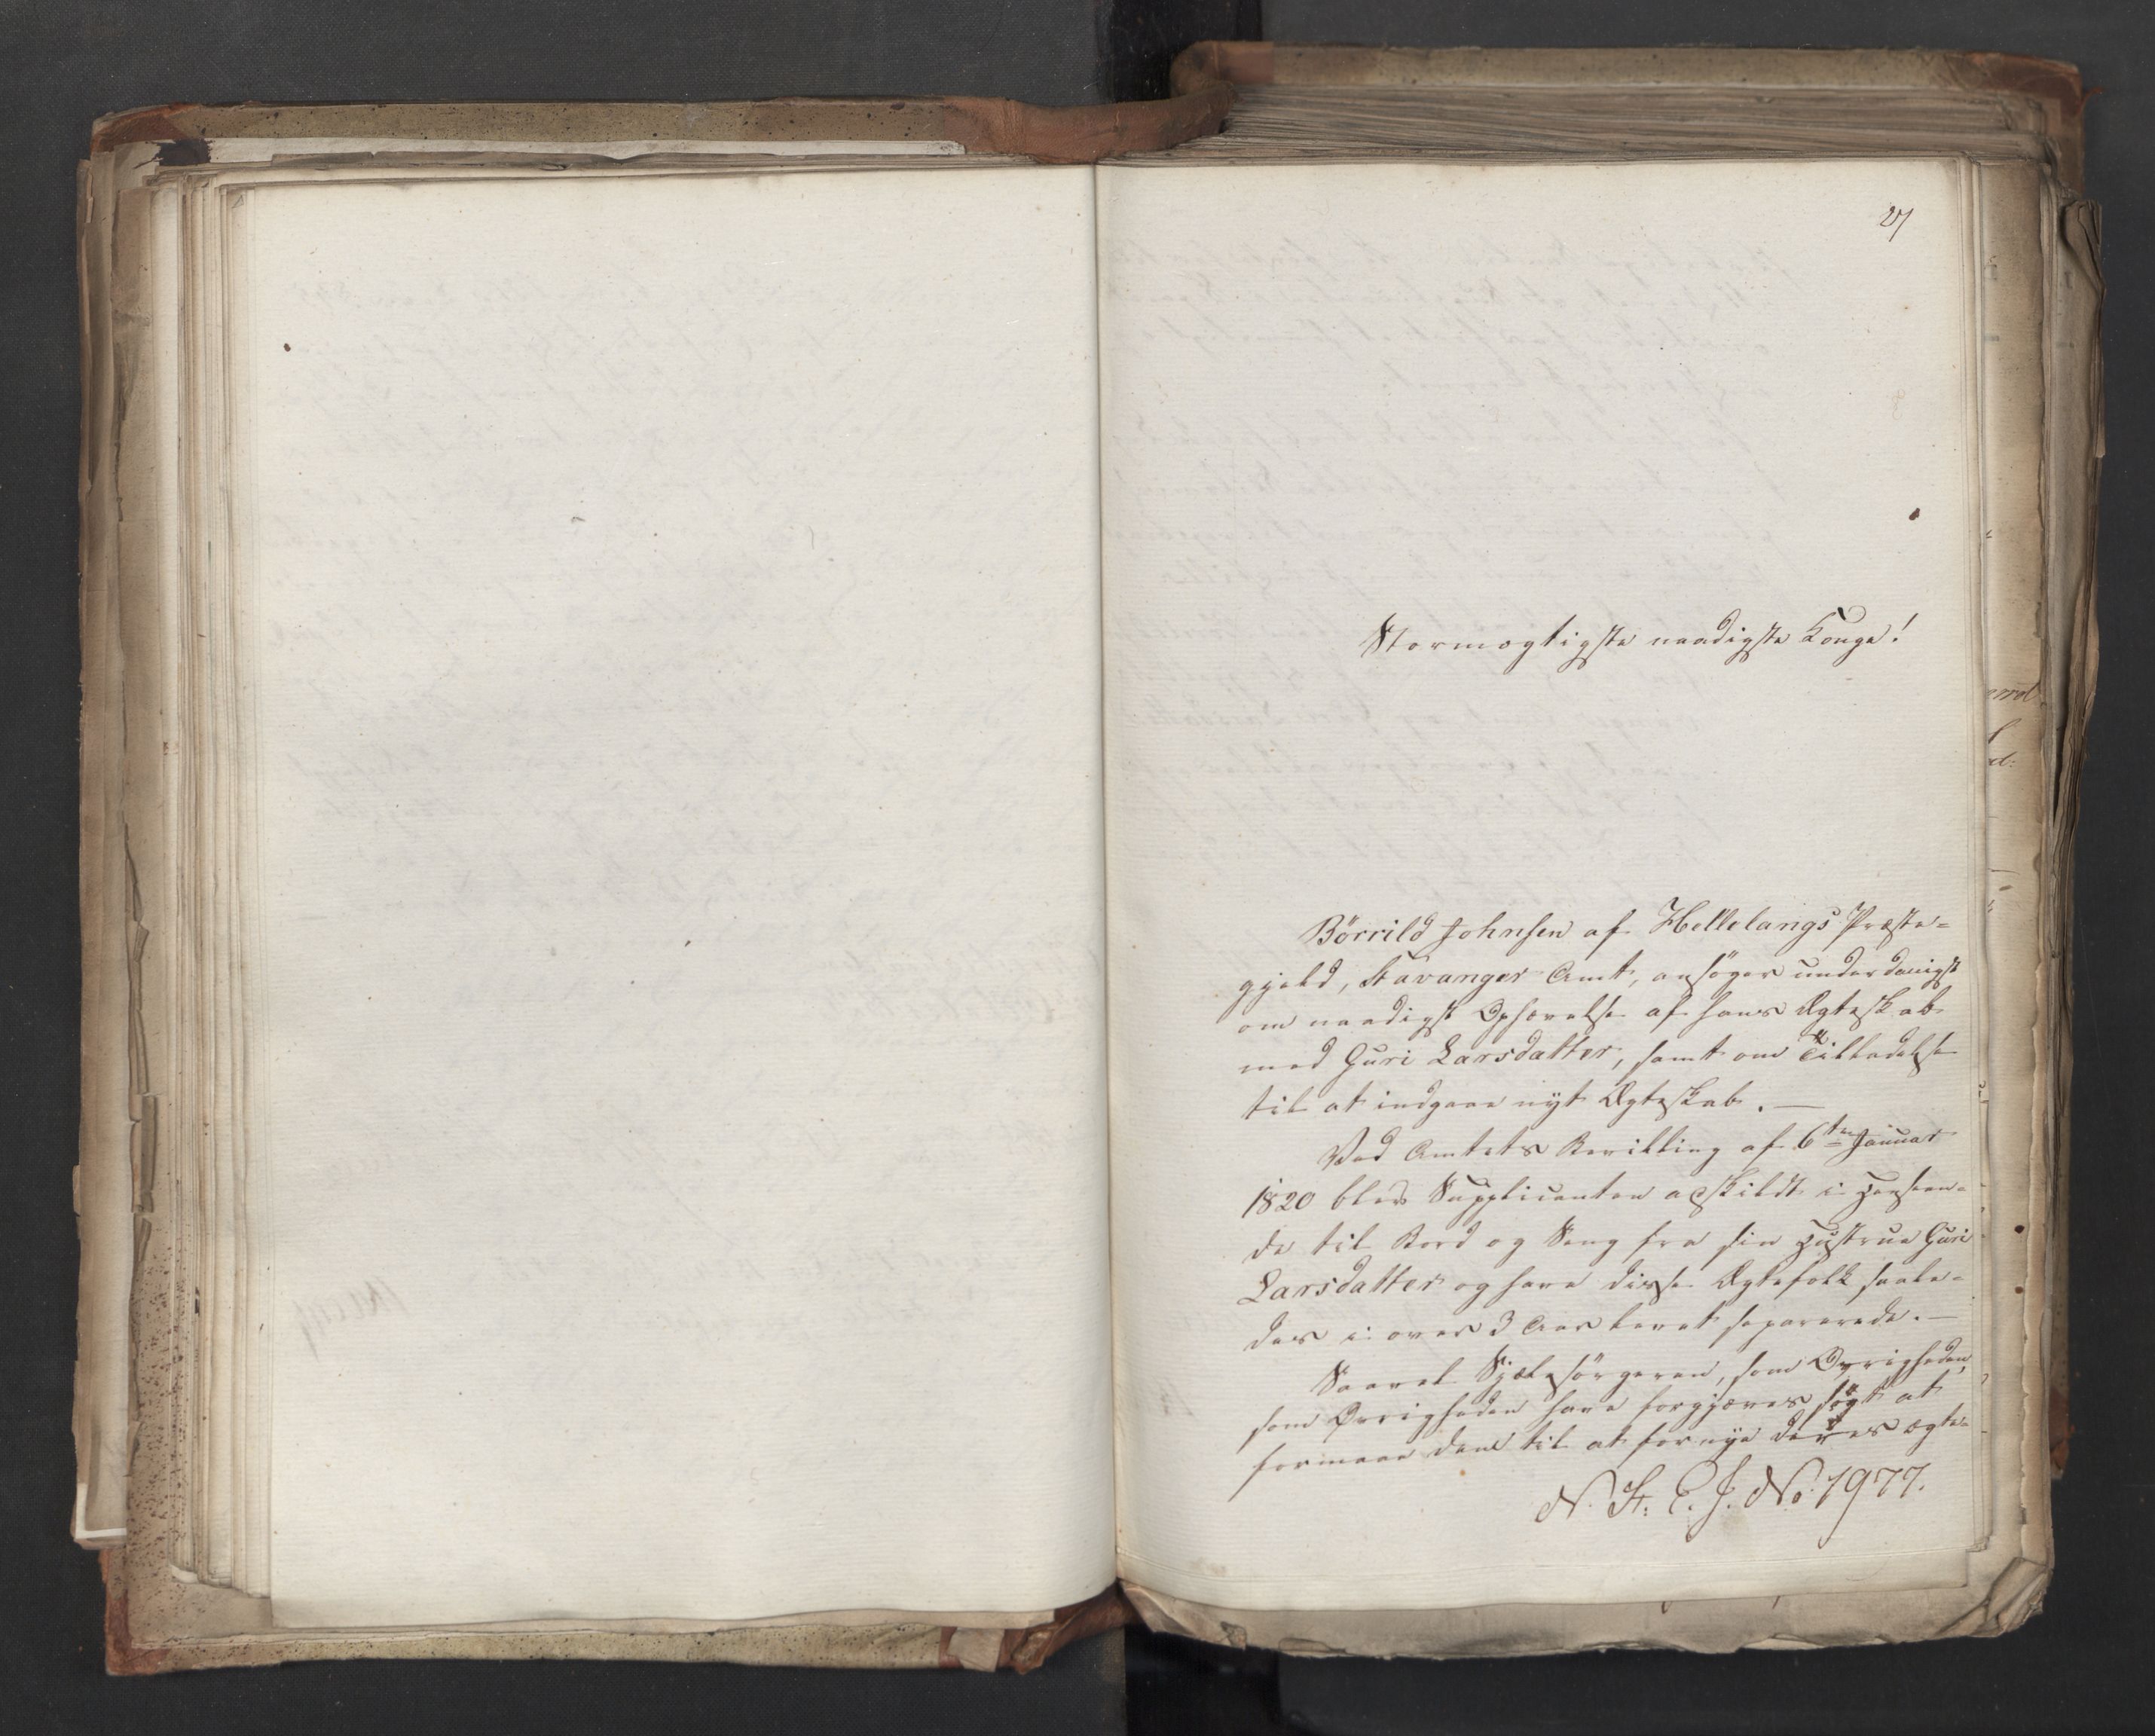 27
Stormægtigste naadigste Konge!
Börrild Johnsen af Hellelangs Præste-
gjeld, Stavanger Amt, ansøger underdanigst
om naadigst Ophævelse af hans Ægteskab
med Guri Larsdatter, samt om Tilladelse
til at indgaae nyt Ægteskab. —
Ved Amtets Bevilling af 6te Januar
1820 blev Supplicanten adskildt i Henseen-
de til Bord og Seng fra sin Hustrue Guri
Larsdatter og have disse Ægtefolk saale-
des i over 3 Aar levet separerede. —
Saavel Sjælesörgeren, som Øvrigheden,
som Øvrigheden have forgjæves søgt at
formaae dem til at fornye deres ægte-
N. St. E. J. No. 1977.